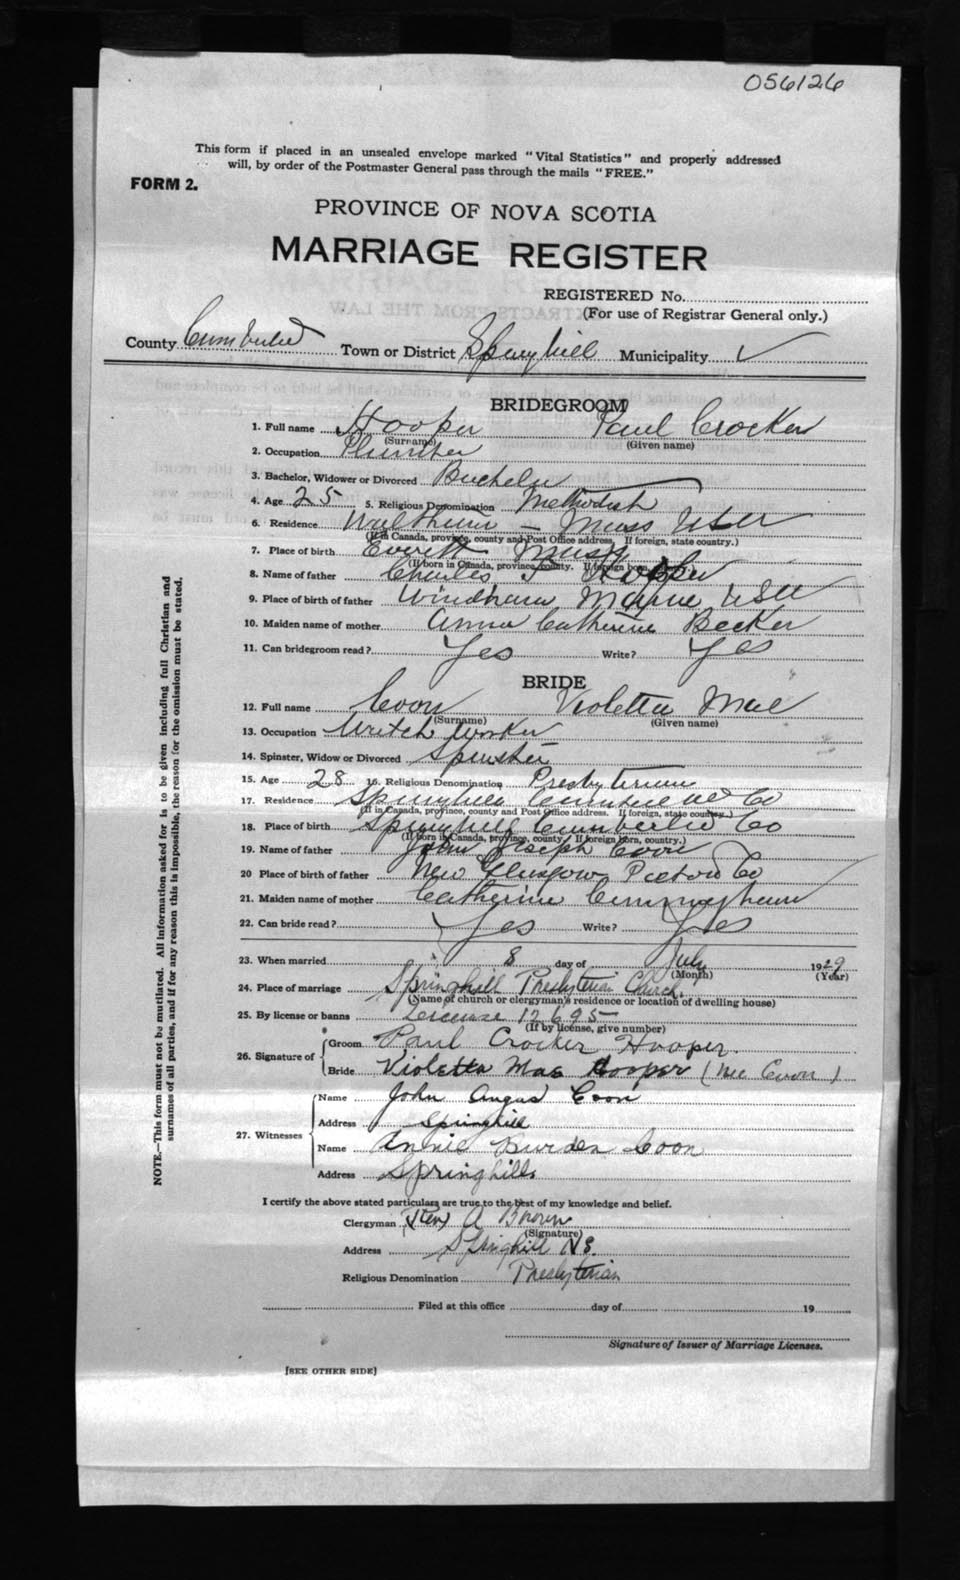 056126
This form if placed in an unsealed envelope marked "Vital Statistics" and properly addressed
will, by order of the Postmaster General pass through the mails "FREE."
FORM 2.
PROVINCE OF NOVA SCOTIA
MARRIAGE REGISTER
REGISTERED No.
(For use of Registrar General only.)
County Cumberland Town or District Springhill Municipality ✓
BRIDEGROOM
1. Full name Hooper Paul Crocker
(Surname) (Given name)
2. Occupation Plumber
3. Bachelor, Widower or Divorced Bachelor
4. Age 25 5. Religious Denomination Methodist
6. Residence Waltham - Mass USA
(If in Canada, province, county and Post Office address. If foreign, state country.)
7. Place of birth Everett Mass
(If born in Canada, province, county. If foreign born, country.)
8. Name of father Charles Hooper
9. Place of birth of father Windham Mayne USA
10. Maiden name of mother Anna Catherine Becker
11. Can bridegroom read? Yes Write? Yes
BRIDE
12. Full name Coon Violetta Mae
(Surname) (Given name)
13. Occupation Watch Worker
14. Spinster, Widow or Divorced Spinster
15. Age 28 16. Religious Denomination Presbyterian
17. Residence Springhill Cumberland Co
(If in Canada, province, county and Post Office address. If foreign, state country.)
18. Place of birth Springhill Cumberland Co
(If born in Canada, province, county. If foreign born, country.)
19. Name of father John Joseph Coon
20 Place of birth of father New Glasgow Pictou Co
21. Maiden name of mother Catherine Cunningham
22. Can bride read? Yes Write? Yes
23. When married 8 day of July 1929
(Month) (Year)
24. Place of marriage Springhill Presbyterian Church.
(Name of church or clergyman's residence or location of dwelling house)
25. By license or banns License 12695
(If by license, give number)
26. Signature of Groom Paul Crocker Hooper.
Bride Violetta Mae Hooper (nee Coon)
27. Witnesses Name John Angus Coon
Address Springhill
Name Annie Burden Coon
Address Springhill
I certify the above stated particulars are true to the best of my knowledge and belief.
Clergyman (Rev) A Brown
(Signature)
Address Springhill N.S.
Religious Denomination Presbyterian
Filed at this office day of 19
Signature of Issuer of Marriage Licenses.
[SEE OTHER SIDE]
NOTE.—This form must not be mutilated. All information asked for is to be given including full Christian and
surnames of all parties, and if for any reason this is impossible, the reason for the omission must be stated.